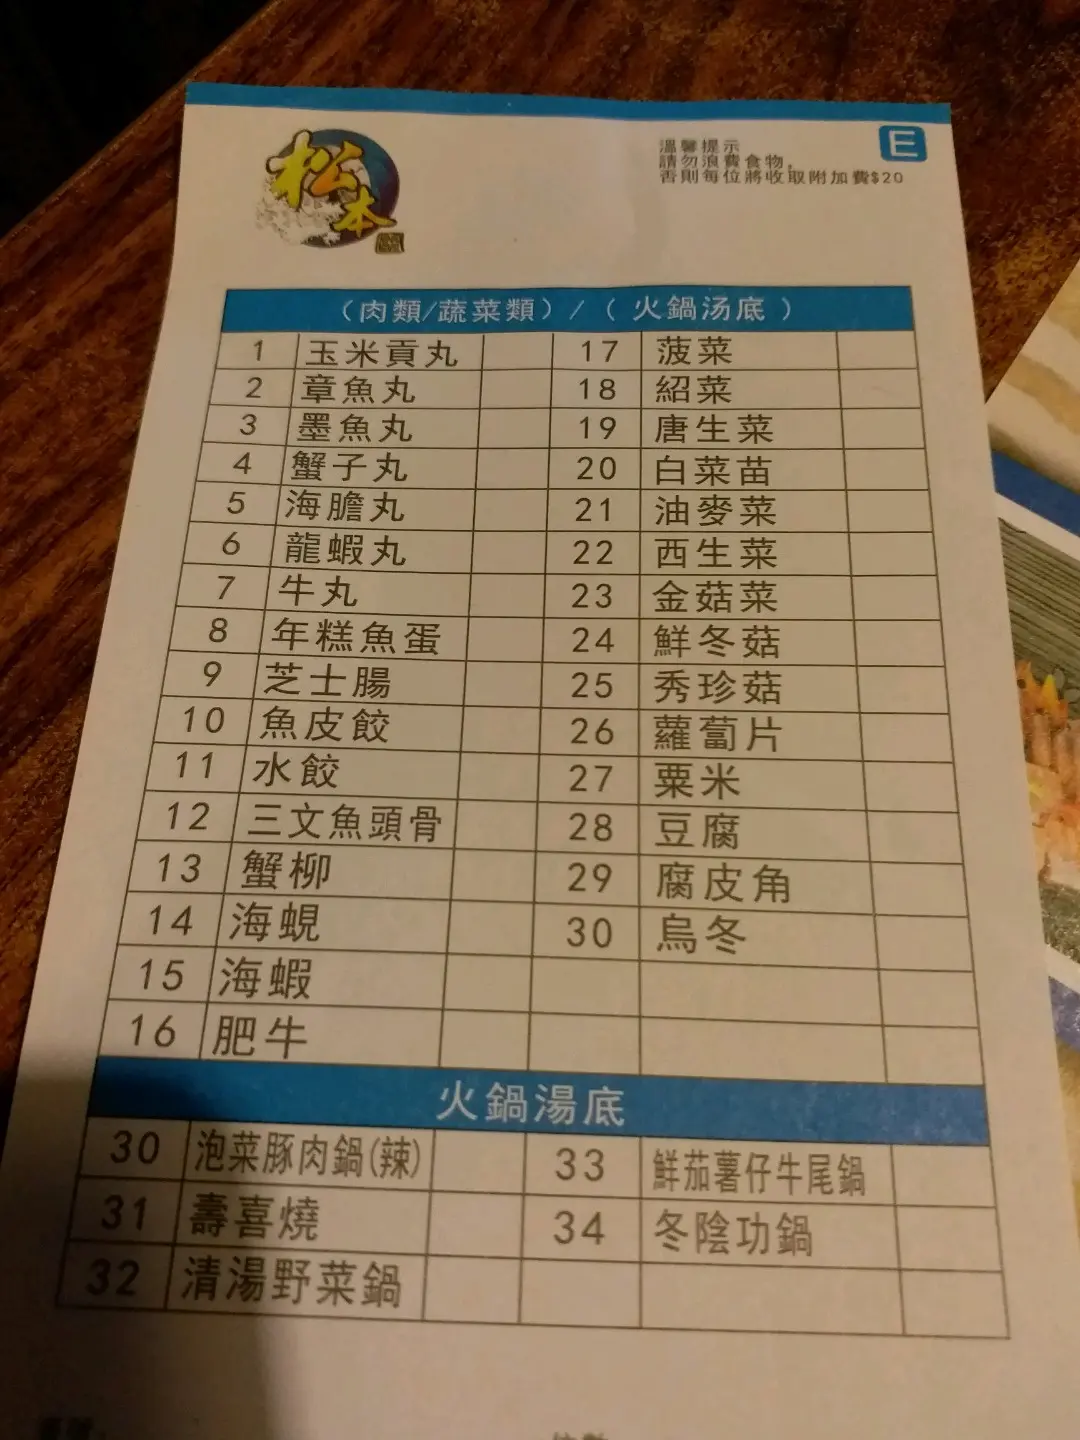 松本
溫馨提示
請勿浪費食物，
否則每位將收取附加費$20
E
（肉類/蔬菜類）/（ 火鍋汤底 ）
1 玉米貢丸 17 菠菜
2 章魚丸 18 紹菜
3 墨魚丸 19 唐生菜
4 蟹子丸 20 白菜苗
5 海膽丸 21 油麥菜
6 龍蝦丸 22 西生菜
7 牛丸 23 金菇菜
8 年糕魚蛋 24 鮮冬菇
9 芝士腸 25 秀珍菇
10 魚皮餃 26 蘿蔔片
11 水餃 27 粟米
12 三文魚頭骨 28 豆腐
13 蟹柳 29 腐皮角
14 海蜆 30 烏冬
15 海蝦
16 肥牛
火鍋湯底
30 泡菜豚肉鍋(辣) 33 鮮茄薯仔牛尾鍋
31 壽喜燒 34 冬陰功鍋
32 清湯野菜鍋